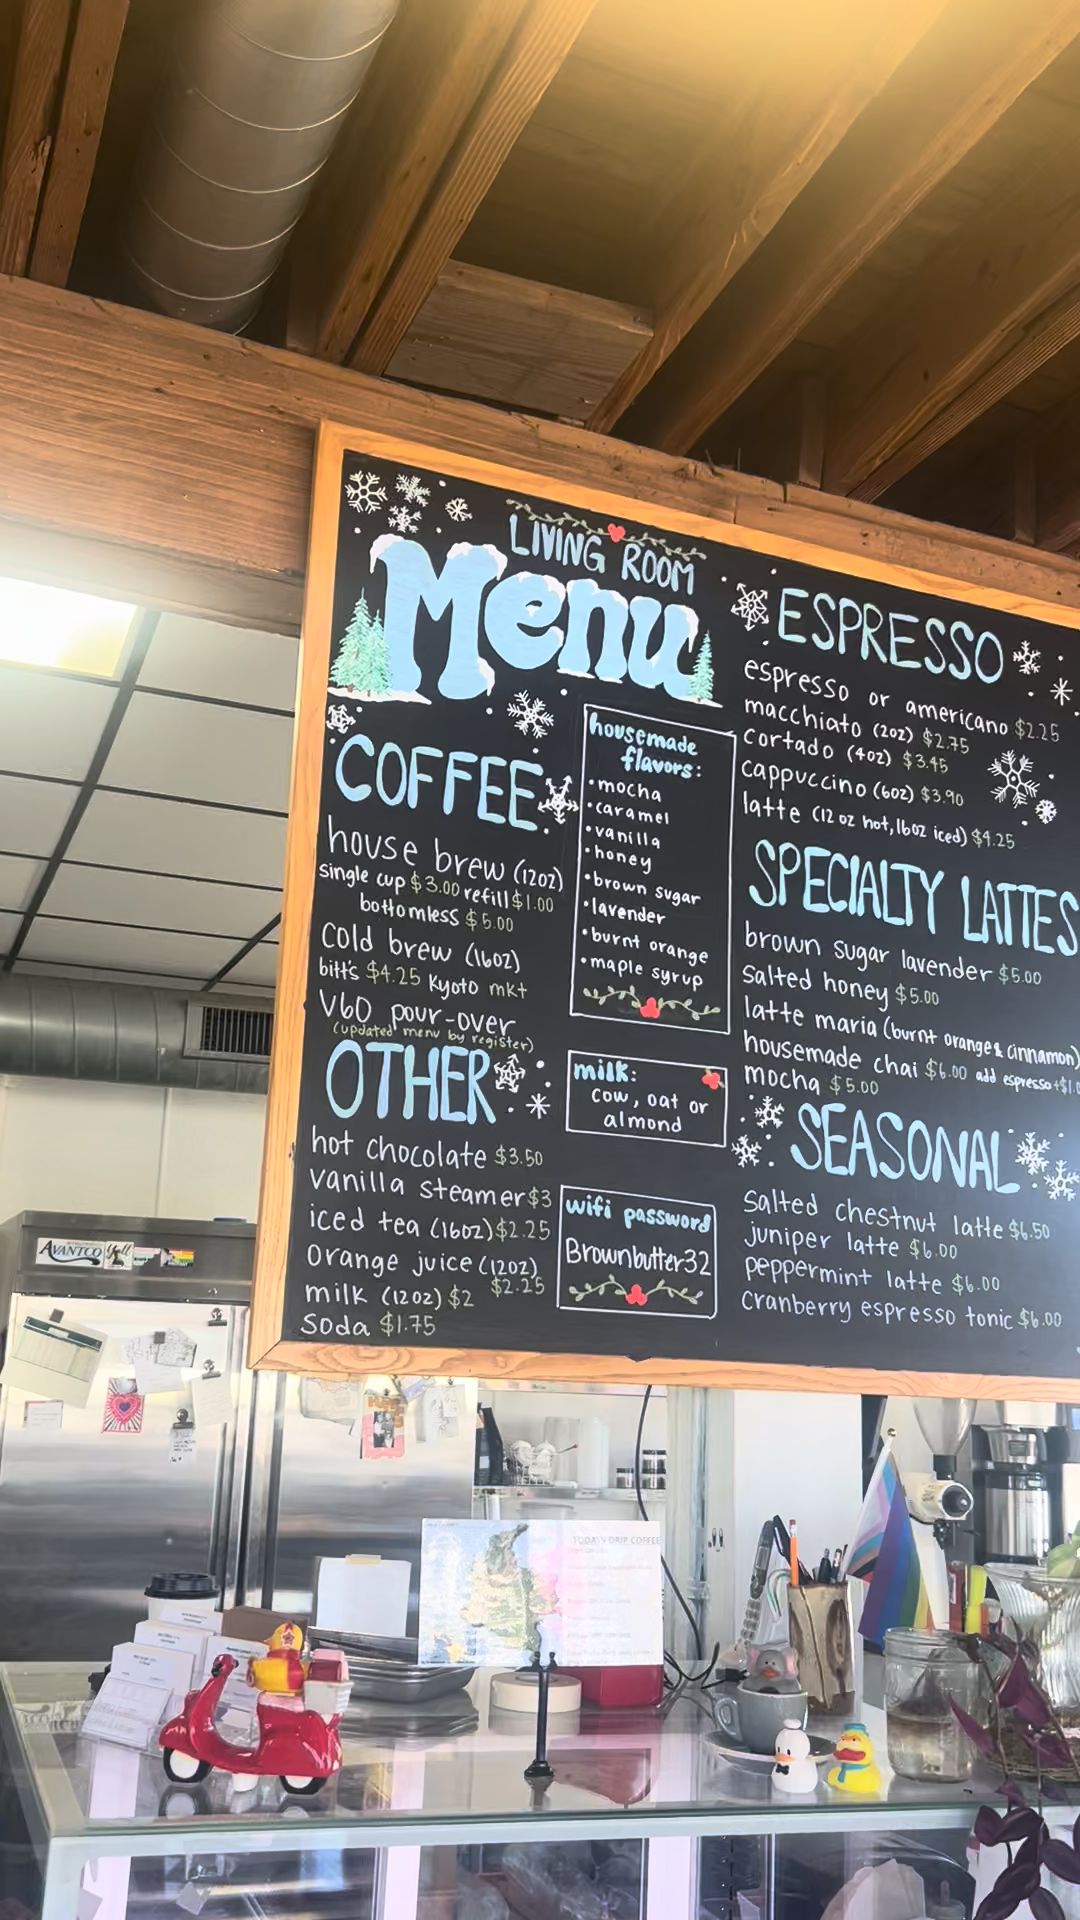 LIVING ROOM
Menu
COFFEE
house brew (12oz)
single cup $3.00 refill $1.00
bottomless $5.00
cold brew (16oz)
bitt's $4.25 Kyoto mkt
V60 pour-over
(updated menu by register)
OTHER
hot chocolate $3.50
vanilla steamer $3
iced tea (16oz) $2.25
orange juice (12oz)
$2.25
milk (12oz) $2
soda $1.75
housemade
flavors:
•mocha
•caramel
•vanilla
•honey
•brown sugar
•lavender
•burnt orange
•maple syrup
milk:
cow, oat or
almond
wifi password
Brownbutter32
ESPRESSO
espresso or americano $2.25
macchiato (2oz) $2.75
cortado (4oz) $3.45
cappuccino (6oz) $3.90
latte (12 oz hot, 16oz iced) $4.25
SPECIALTY LATTES
brown sugar lavender $5.00
salted honey $5.00
latte maria (burnt orange & cinnamon)
housemade chai $6.00 add espresso +$1.0
mocha $5.00
SEASONAL
salted chestnut latte $6.50
juniper latte $6.00
peppermint latte $6.00
cranberry espresso tonic $6.00
AVANTCO
Y'all
TODAY'S DRIP COFFEE